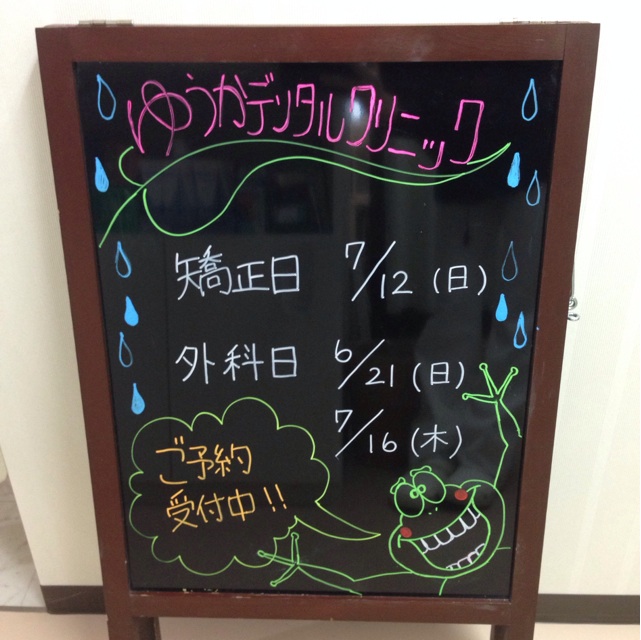 ゆうかデンタルクリニック
矯正日 7/12(日)
外科日 6/21(日)
7/16(木)
ご予約
受付中!!